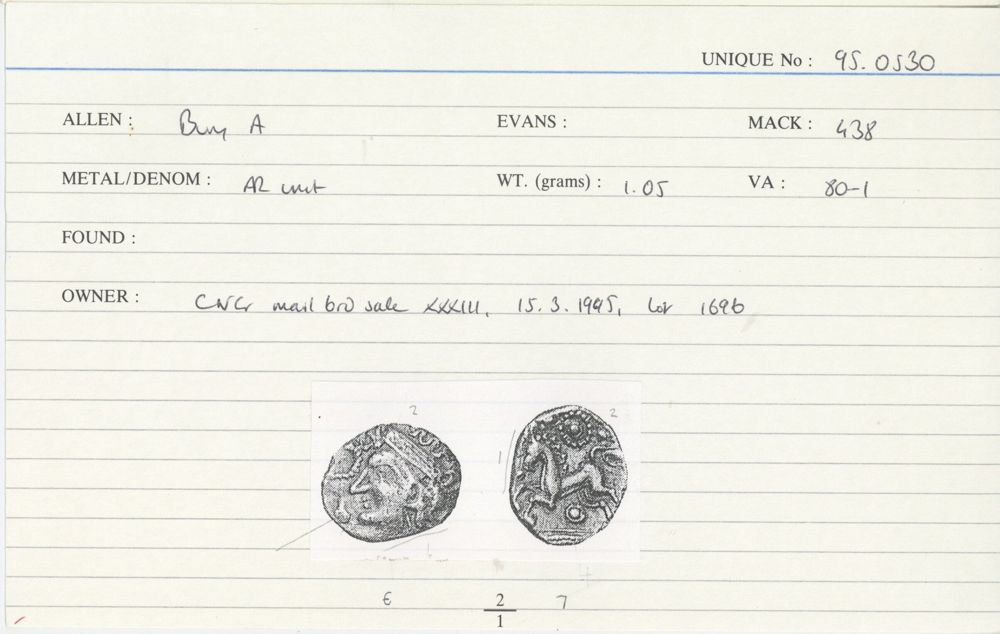 UNIQUE No : 95.0530
ALLEN : Bury A EVANS : MACK : 438
METAL/DENOM : AR unit WT. (grams) : 1.05 VA : 80-1
FOUND :
OWNER : CNG mail bid sale XXXIII, 15.3.1995, lot 1696
2 2
1
6 2 7
1